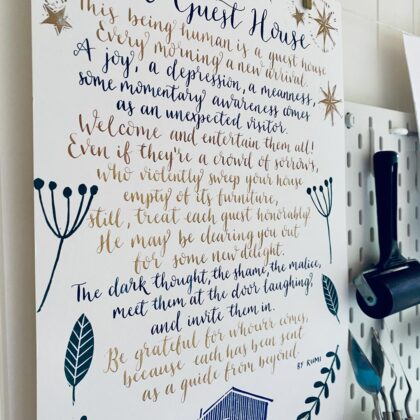 Guest House
This being human is a guest house
Every morning a new arrival.
A joy, a depression, a meanness,
some momentary awareness comes
as an unexpected visitor.
Welcome and entertain them all!
Even if they're a crowd of sorrows,
who violently sweep your house
empty of its furniture,
still, treat each guest honorably
He may be clearing you out
for some new delight.
The dark thought, the shame, the malice,
meet them at the door laughing,
and invite them in.
Be grateful for whoever comes,
because each has been sent
as a guide from beyond.
BY RUMI